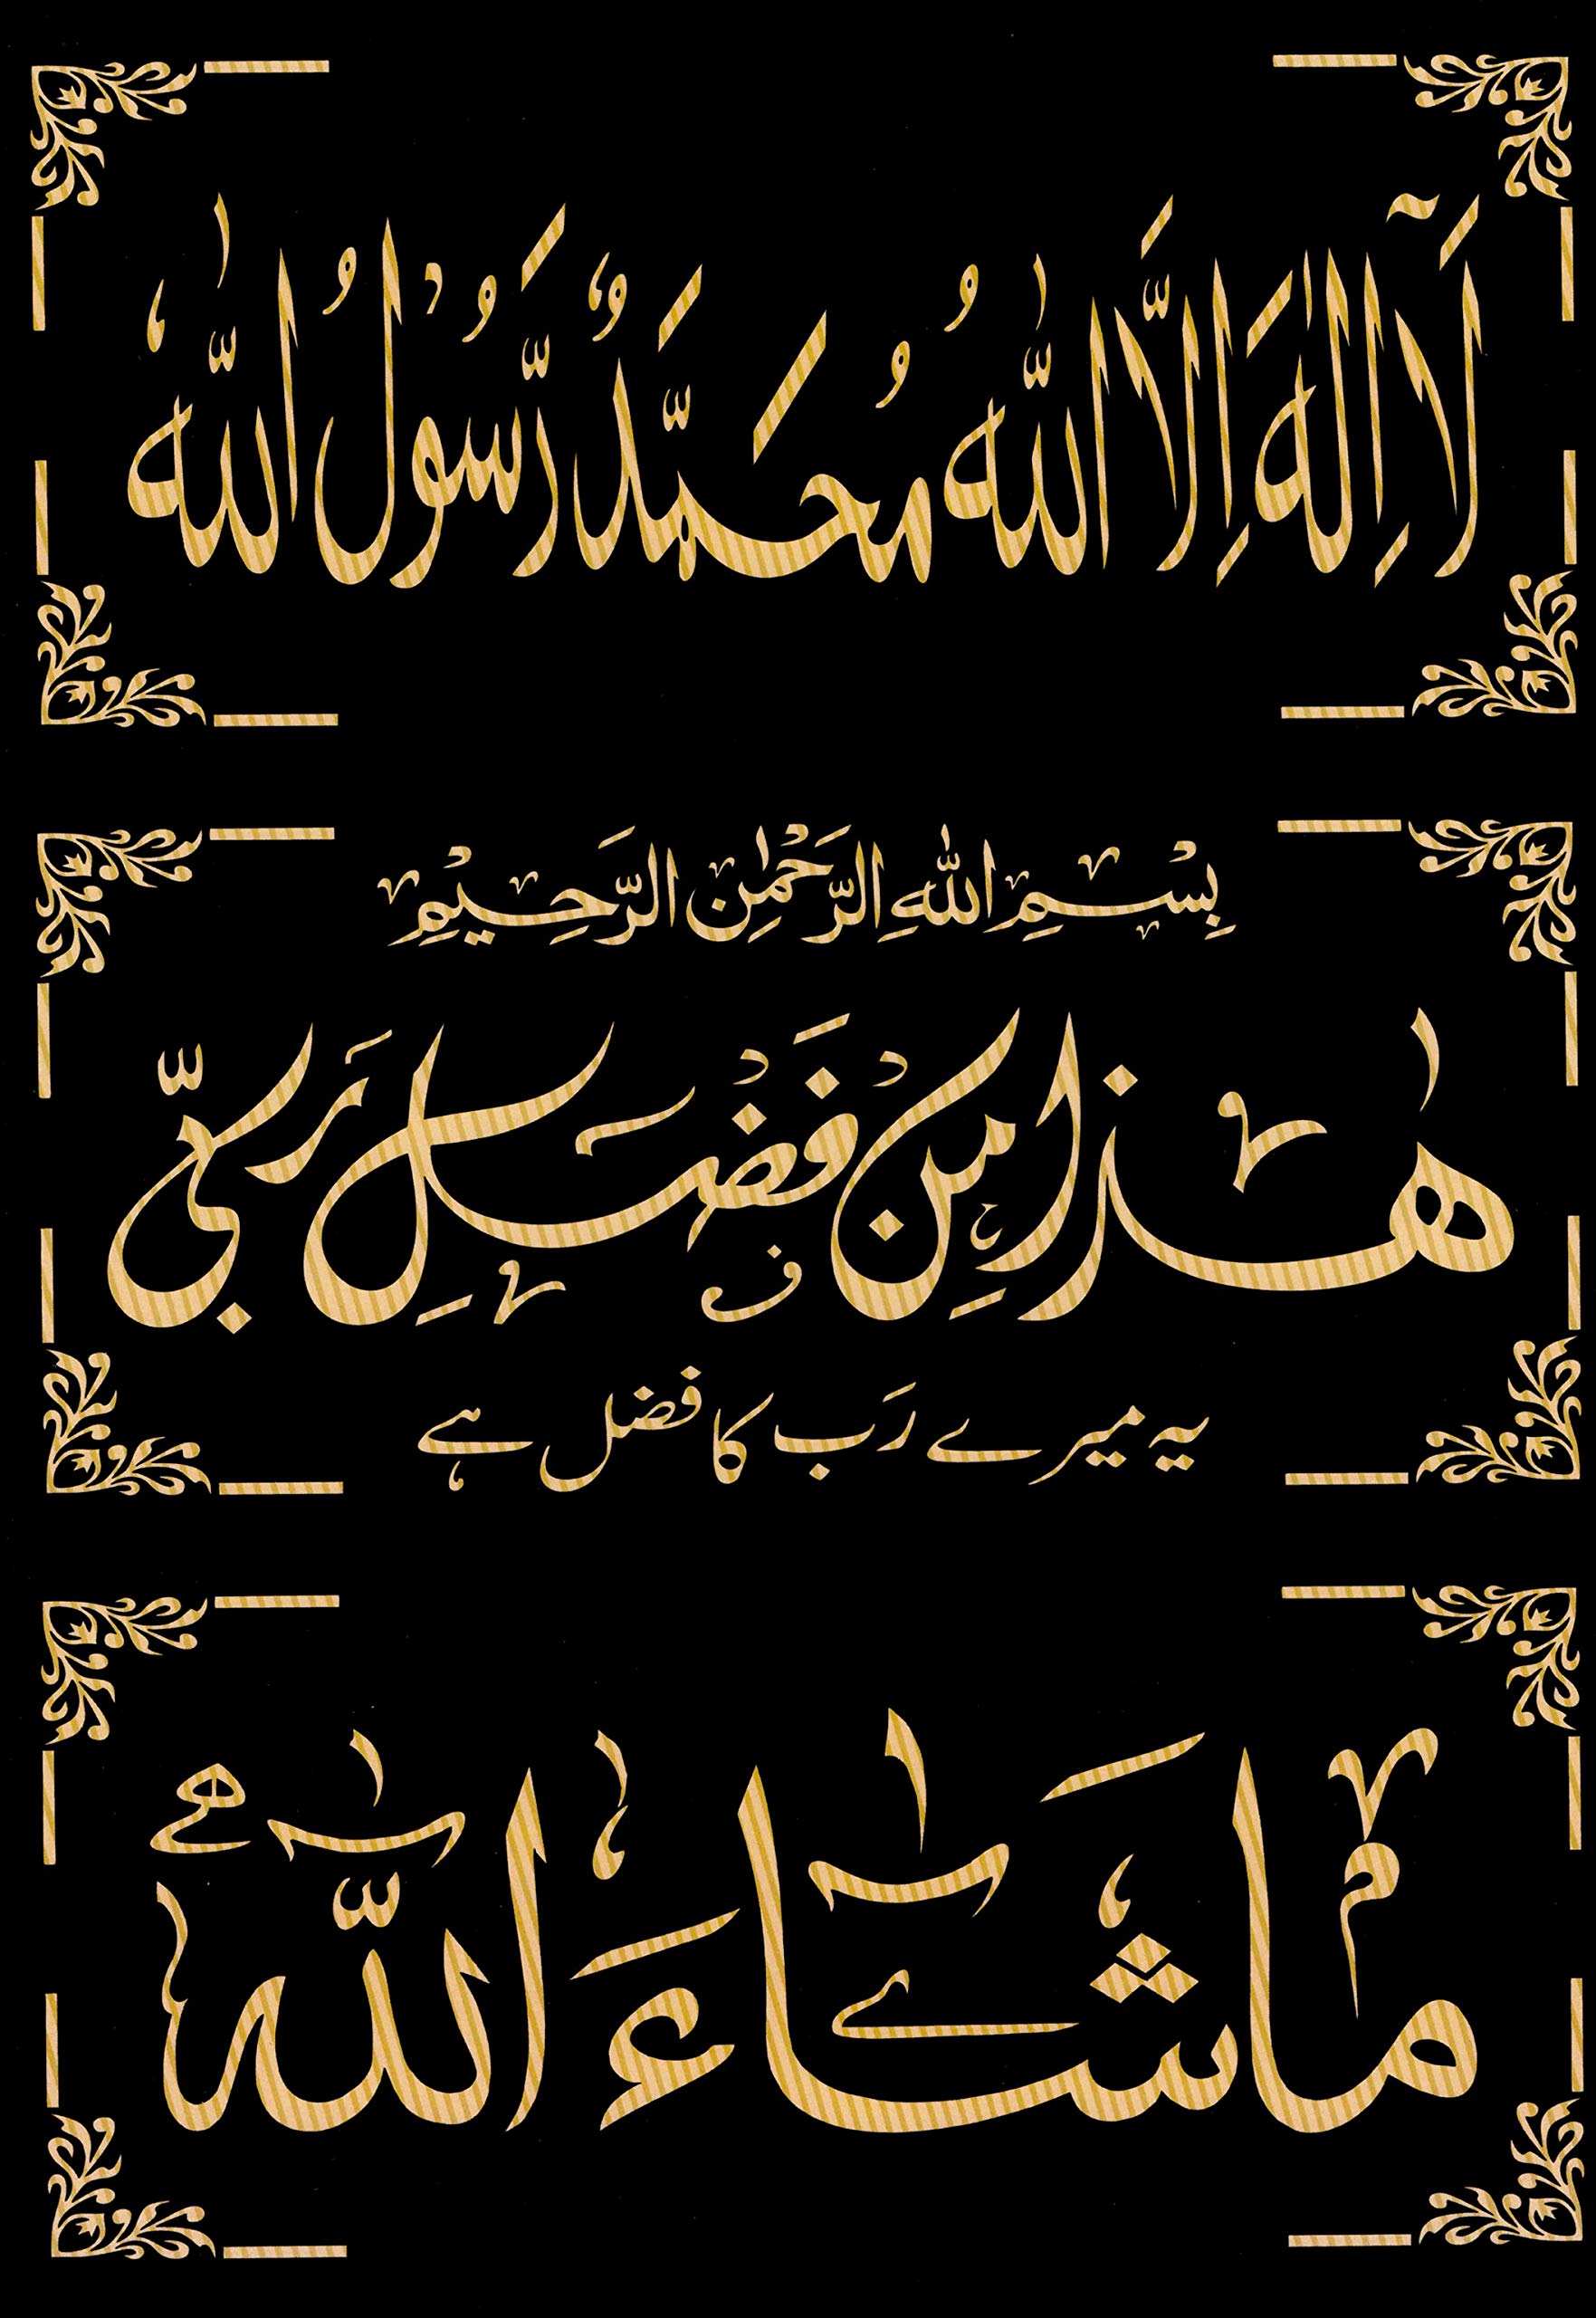 لَآ اِلٰهَ اِلَّا اللّٰهُ مُحَمَّدٌ رَّسُوْلُ اللّٰه
بِسْمِ اللّٰهِ الرَّحْمٰنِ الرَّحِيْمِ
هٰذَا مِنْ فَضْلِ رَبِّی
یہ میرے رَب کا فضل ہے
مَا شَاءَ اللّٰه